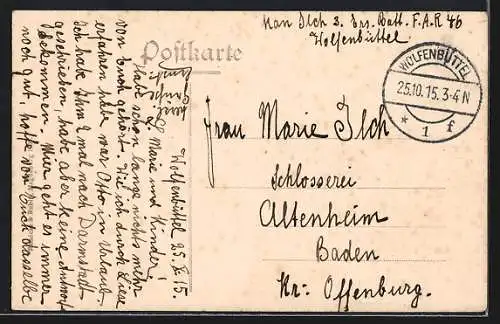 Kan Ilch 3. Ers. Batt. F.A.R 46
Wolfenbüttel
Postkarte
WOLFENBÜTTEL
25.10.15.3-4N
* 1 f
Frau Marie Ilch
Schlosserei
Altenheim
Baden
Kr. Offenburg.
Wolfenbüttel 25. X. 15.
L. Marie und Kinder!
Habe schon lange nichts mehr
von Euch gehört. Wie ich durch Luise
erfahren habe war Otto in Urlaub.
Ich habe Ihm 2 mal nach Darmstadt
geschrieben, habe aber keine Antwort
bekommen. Mir geht es immer
noch gut, hoffe von Euch dasselbe